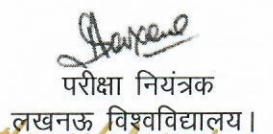 परीक्षा नियंत्रक
लखनऊ विश्वविद्यालय।